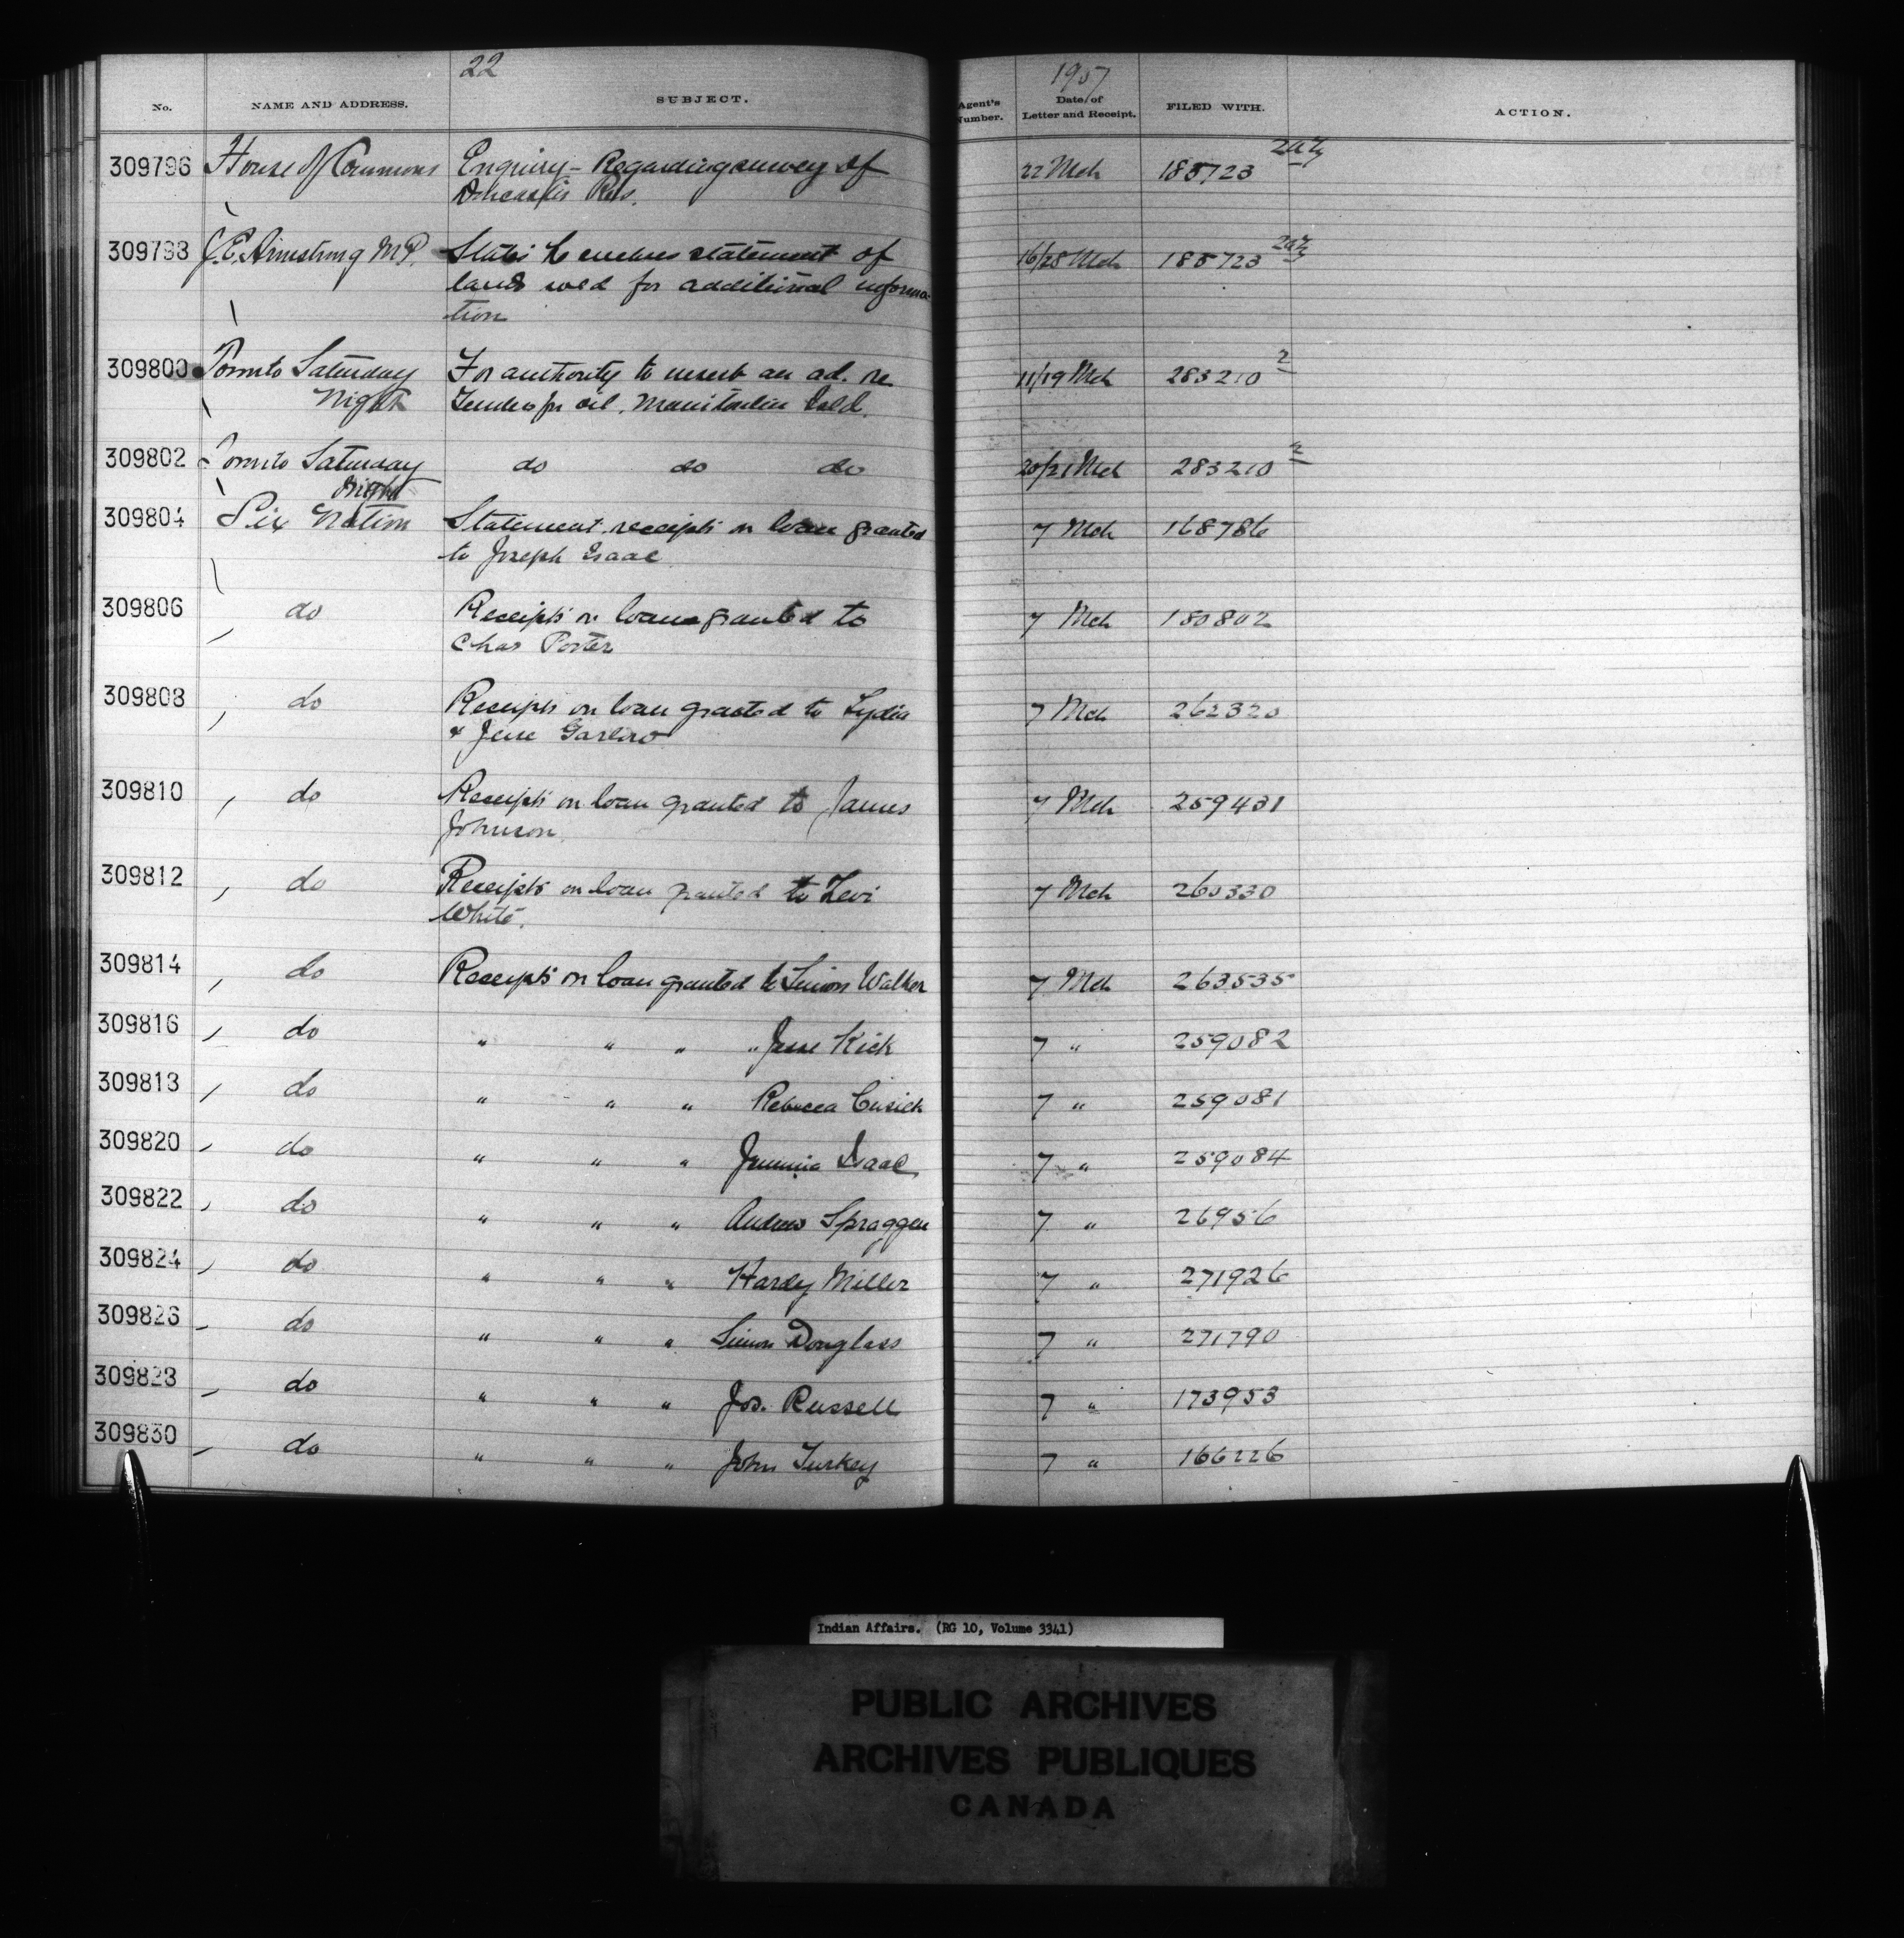 22
1907
No. NAME AND ADDRESS. SUBJECT. Agent's Number. Date of Letter and Receipt. FILED WITH. ACTION.
309796 House of Commons Enquiry - Regarding survey of 22 Mch 185723
Res.
309798 J.E. Armstrong M.P. States he encloses statement of 16/28 Mch 185723
lands sold for additional informa-
tion
309800 Toronto Saturday For authority to insert an ad. re 11/19 Mch 283210 2
Night Tenders for oil, Manitoulin Isld.
309802 Toronto Saturday do do do 20/21 Mch 283210 2
Night
309804 Six Nation Statement receipts on loan granted 7 Mch 168786
to Joseph Isaac
309806 do Receipts on loan granted to 7 Mch 180802
Chas Porter
309808 do Receipts on loan granted to Lydia 7 Mch 262320
& Jesse Garlow
309810 do Receipts on loan granted to James 7 Mch 259431
Johnson
309812 do Receipts on loan granted to Levi 7 Mch 260330
White.
309814 do Receipts on loan granted to Simon Walker 7 Mch 263535
309816 do " " " " Jesse Kick 7 " 259082
309818 do " " " Rebecca Cusick 7 " 259081
309820 do " " " Jemima Isaac 7 " 259084
309822 do " " " Andrew Spraggen 7 " 26956
309824 do " " " Hardy Miller 7 " 271926
309826 do " " " Simon Douglass 7 " 271790
309828 do " " " Jos. Russell 7 " 173953
309830 do " " " John Turkey 7 " 166226
Indian Affairs. (RG 10, Volume 3341)
PUBLIC ARCHIVES
ARCHIVES PUBLIQUES
CANADA